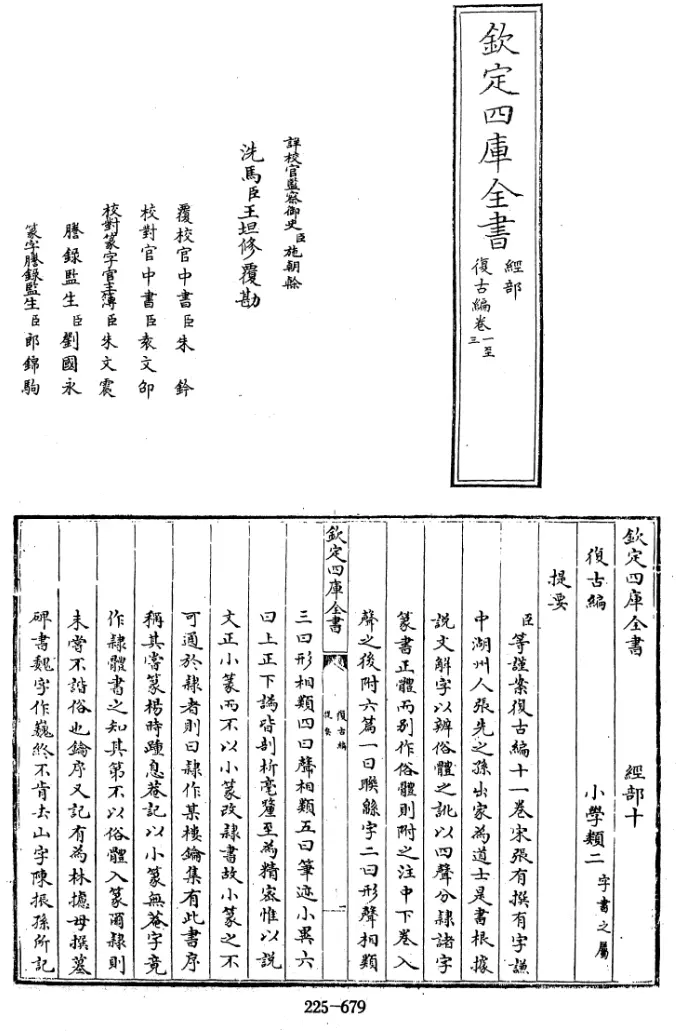 欽定四庫全書
經部
復古編卷一至三
詳校官監察御史臣施朝幹
洗馬臣王坦修覆勘
覆校官中書臣朱鈐
校對官中書臣袁文邵
校對篆字官主簿臣朱文震
謄錄監生臣劉國永
篆字謄錄監生臣郎錦騊
欽定四庫全書 經部十
復古編 小學類二 字書之屬
提要
臣等謹案復古編十一卷宋張有撰有字謙
中湖州人張先之孫出家為道士是書根據
說文解字以辨俗體之訛以四聲分隸諸字
篆書正體而別作俗體則附之注中下卷入
聲之後附六篇一曰聯緜字二曰形聲相類
欽定四庫全書
復古編
提要
二
三曰形相類四曰聲相類五曰筆迹小異六
曰上正下譌皆剖析毫釐至為精密惟以說
文正小篆而不以小篆改隸書故小篆之不
可通於隸者則曰隸作某樓鑰集有此書序
稱其嘗篆楊時踵息菴記以小篆無菴字竟
作隸體書之知其第不以俗體入篆爾隸則
未嘗不諧俗也鑰序又記有為林攄母撰墓
碑書魏字作巍終不肯去山字陳振孫所記
225-679